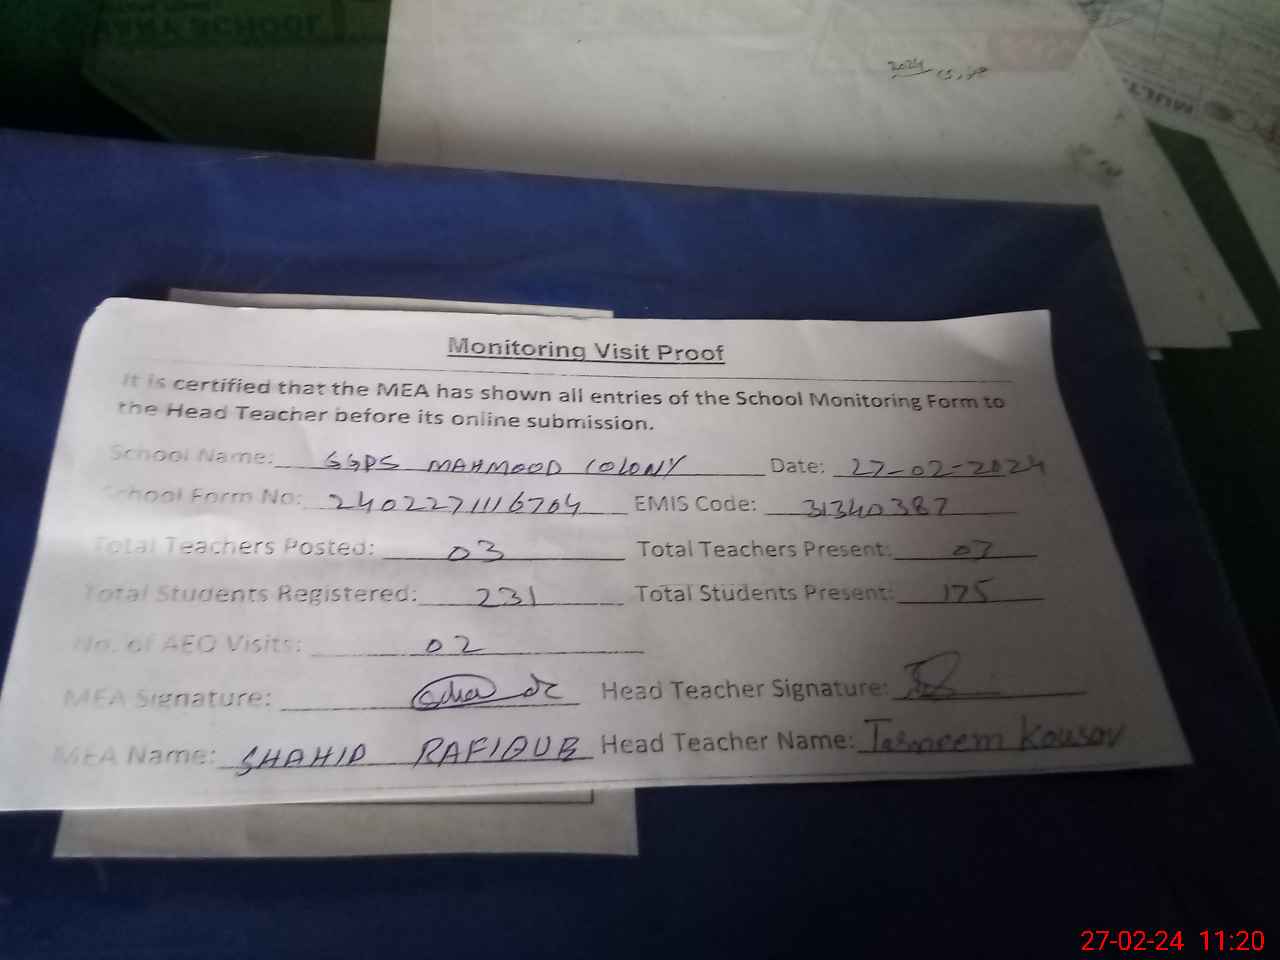 2024
Monitoring Visit Proof
It is certified that the MEA has shown all entries of the School Monitoring Form to
the Head Teacher before its online submission.
School Name: GGPS MAHMOOD COLONY Date: 27-02-2024
School Form No: 2402271116704 EMIS Code: 31340387
Total Teachers Posted: 03 Total Teachers Present:
Total Students Registered: 231 Total Students Present: 175
No. of AEO Visits: 02
MEA Signature: Head Teacher Signature:
MEA Name: SHAHID RAFIQUE Head Teacher Name: Tasneem Kousar
27-02-24 11:20